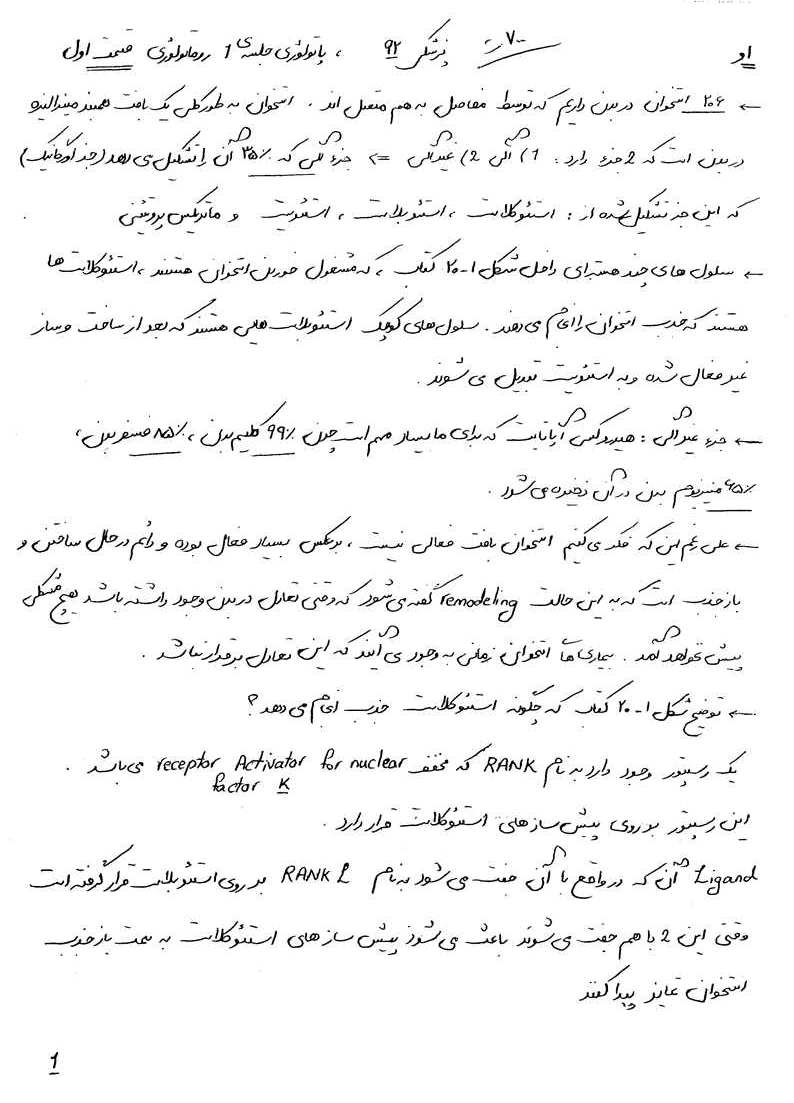 او
-۷- پزشکی ۹۲ ، پاتولوژی جلسه‌ی 1 روماتولوژی قسمت اول
← ۲۰۶ استخوان در بدن داریم که توسط مفاصل به هم متصل اند . استخوان به طور کلی یک بافت همبند مینرالیزه
در بدن است که 2 جزء دارد : 1) آلی 2) غیرآلی <= جزء آلی که ۳۵٪ آن را تشکیل می دهد (جزء ارگانیک)
که این جزء تشکیل شده از : استئوکلاست ، استئوبلاست ، استئوسیت و ماتریکس پروتئینی .
← سلول های چند هسته‌ای داخل شکل ۱-۲۰ کتاب ، که مشغول خوردن استخوان هستند ، استئوکلاست ها
هستند که جذب استخوان را انجام می دهند . سلول های کوچک استئوبلاست هایی هستند که بعد از ساخت و ساز
غیر فعال شده و به استئوسیت تبدیل می شوند .
← جزء غیرآلی : هیدروکسی آپاتایت که برای ما بسیار مهم است چون ۹۹٪ کلسیم بدن ، ۸۵٪ فسفر بدن ،
۶۵٪ منیزیوم بدن در آن ذخیره می شود .
← علی رغم این که فکر می کنیم استخوان بافت فعالی نیست ، برعکس بسیار فعال بوده و دائم در حال ساختن و
بازجذب است که به این حالت remodeling گفته می شود که وقتی تعادل در بدن وجود داشته باشد هیچ مشکلی
پیش نخواهد آمد . بیماری های استخوان زمانی به وجود می آیند که این تعادل برقرار نباشد .
← توضیح شکل ۱-۲۰ کتاب که چگونه استئوکلاست جذب انجام می دهد ؟
یک رسپتور وجود دارد به نام RANK که مخفف receptor Activator for nuclear factor K می باشد .
این رسپتور بر روی پیش سازهای استئوکلاست قرار دارد .
Ligand آن که در واقع با آن جفت می شود به نام RANK L بر روی استئوبلاست قرار گرفته است
وقتی این 2 با هم جفت می شوند باعث می شوند پیش سازهای استئوکلاست به سمت بازجذب
استخوان تمایز پیدا کنند
1